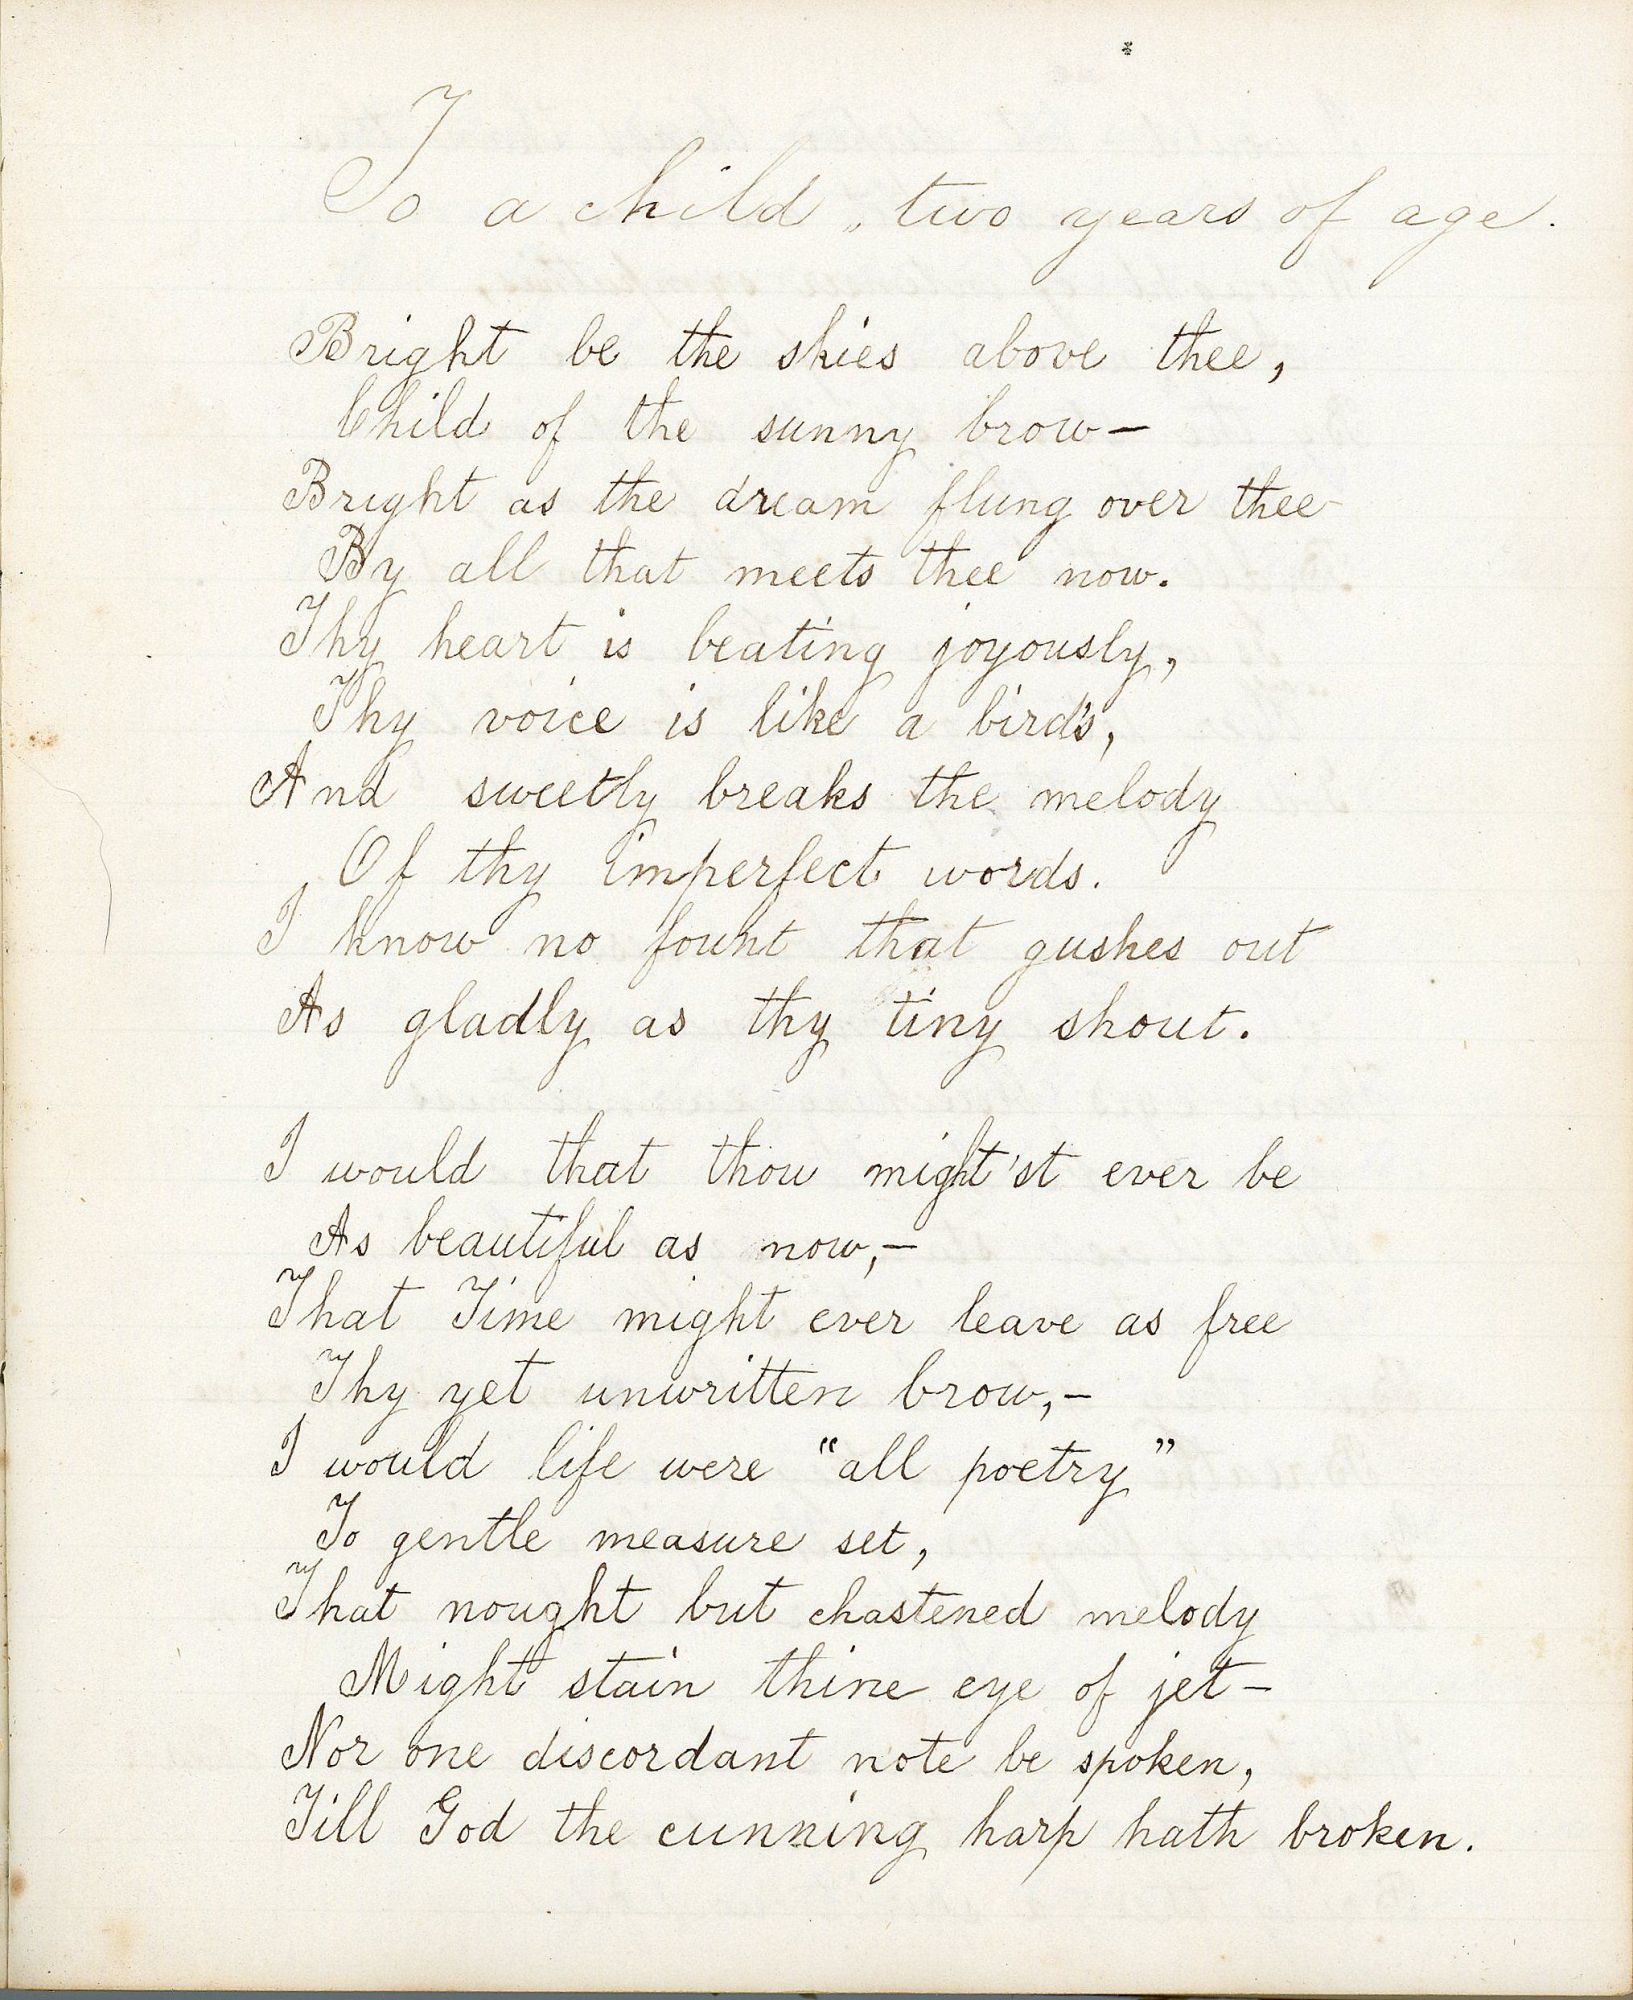 To a child, two years of age.
Bright be the skies above thee,
Child of the sunny brow—
Bright as the dream flung over thee
By all that meets thee now.
Thy heart is beating joyously,
Thy voice is like a bird's,
And sweetly breaks the melody
Of thy imperfect words.
I know no fount that gushes out
As gladly as thy tiny shout.
I would that thou might'st ever be
As beautiful as now,—
That Time might ever leave as free
Thy yet unwritten brow,—
I would life were "all poetry"
To gentle measure set,
That nought but chastened melody
Might stain thine eye of jet—
Nor one discordant note be spoken,
Till God the cunning harp hath broken.